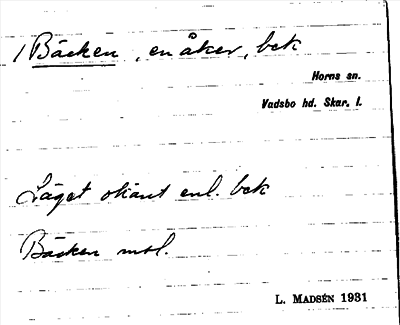 1 Bäcken, en åker, bek
Horns sn.
Vadsbo hd. Skar. l.
Läget okänt enl. bek
Bäcken msl.
L. MADSÉN 1931